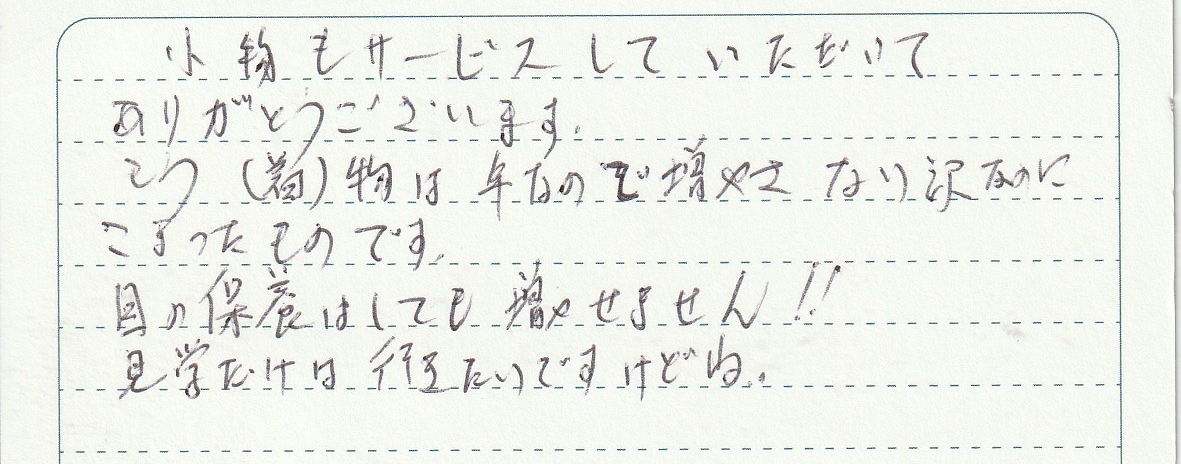 小物もサービスしていただいて
ありがとうございます。
もう(着)物は年なので増やさない訳なのに
こまったものです。
目の保養はしても増やせません!!
見学だけは行きたいですけどね。